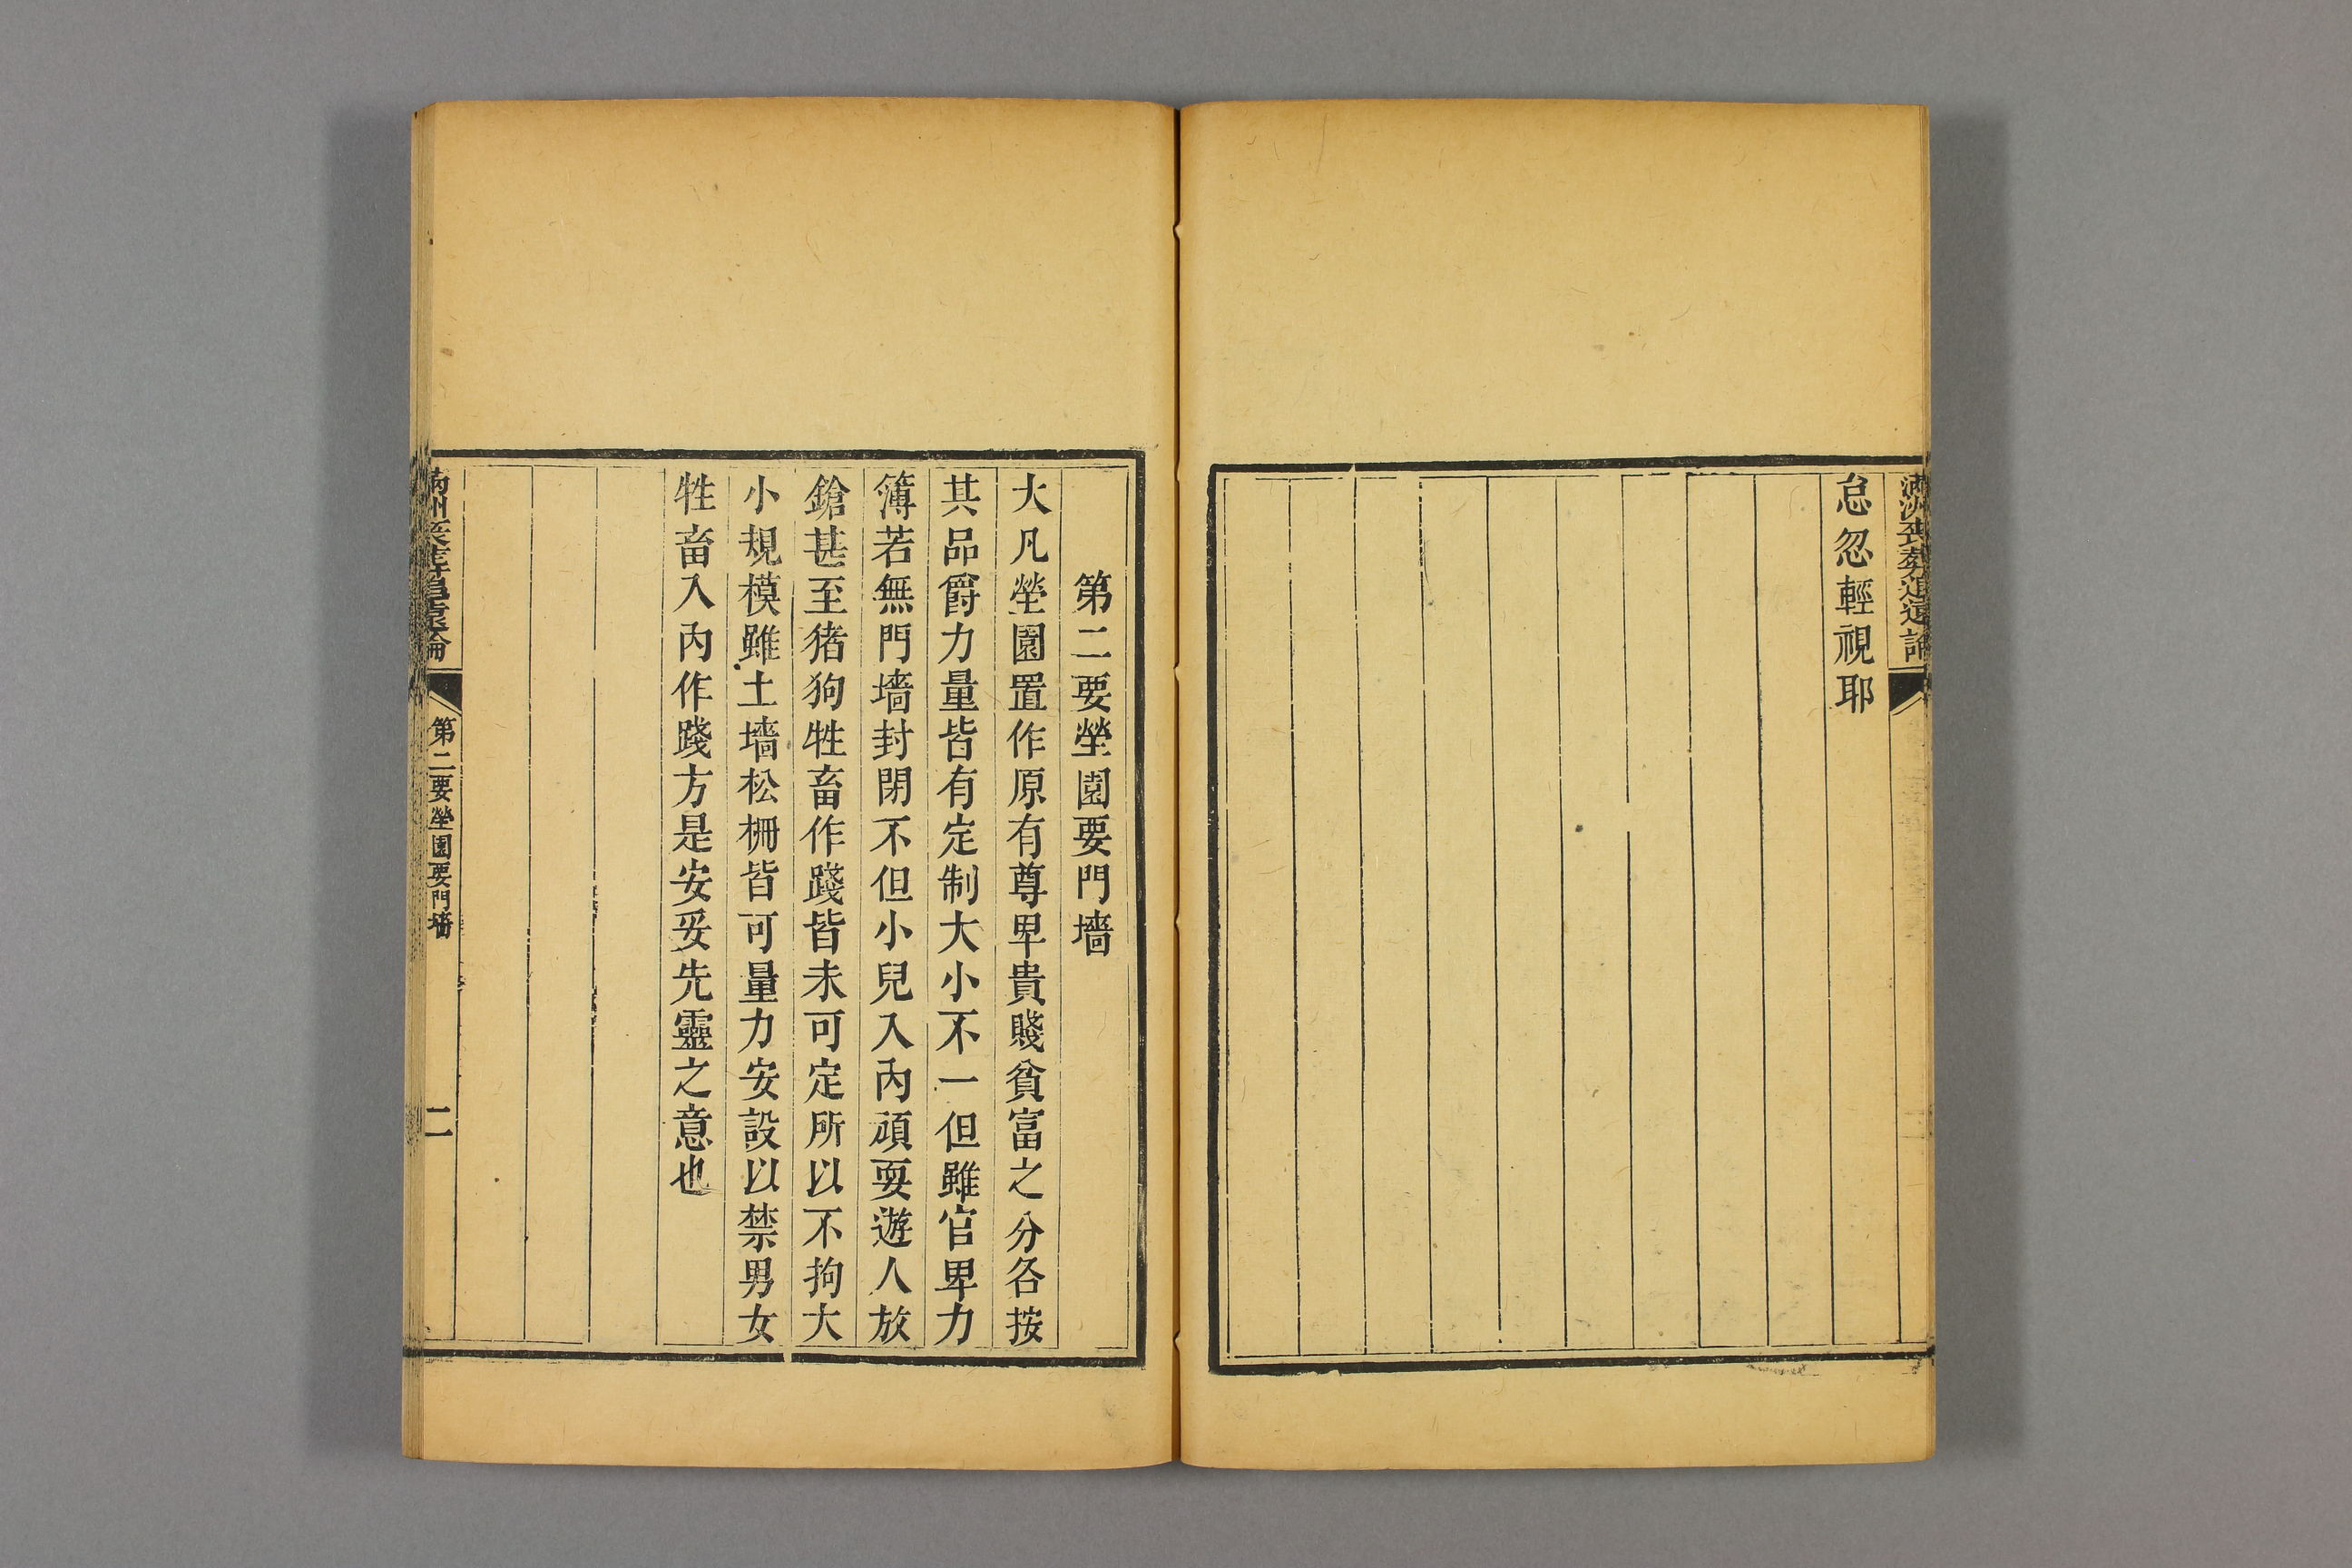 滿洲喪葬追遠論
怠忽輕視耶
第二要塋園要門墻
大凡塋園置作原有尊卑貴賤貧富之分各按
其品爵力量皆有定制大小不一但雖官卑力
簿若無門墻封閉不但小兒入內頑耍遊人放
鎗甚至猪狗牲畜作踐皆未可定所以不拘大
小規模雖土墻松柵皆可量力安設以禁男女
牲畜入內作踐方是安妥先靈之意也
滿洲喪葬追遠論
第二要塋園要門墻
二